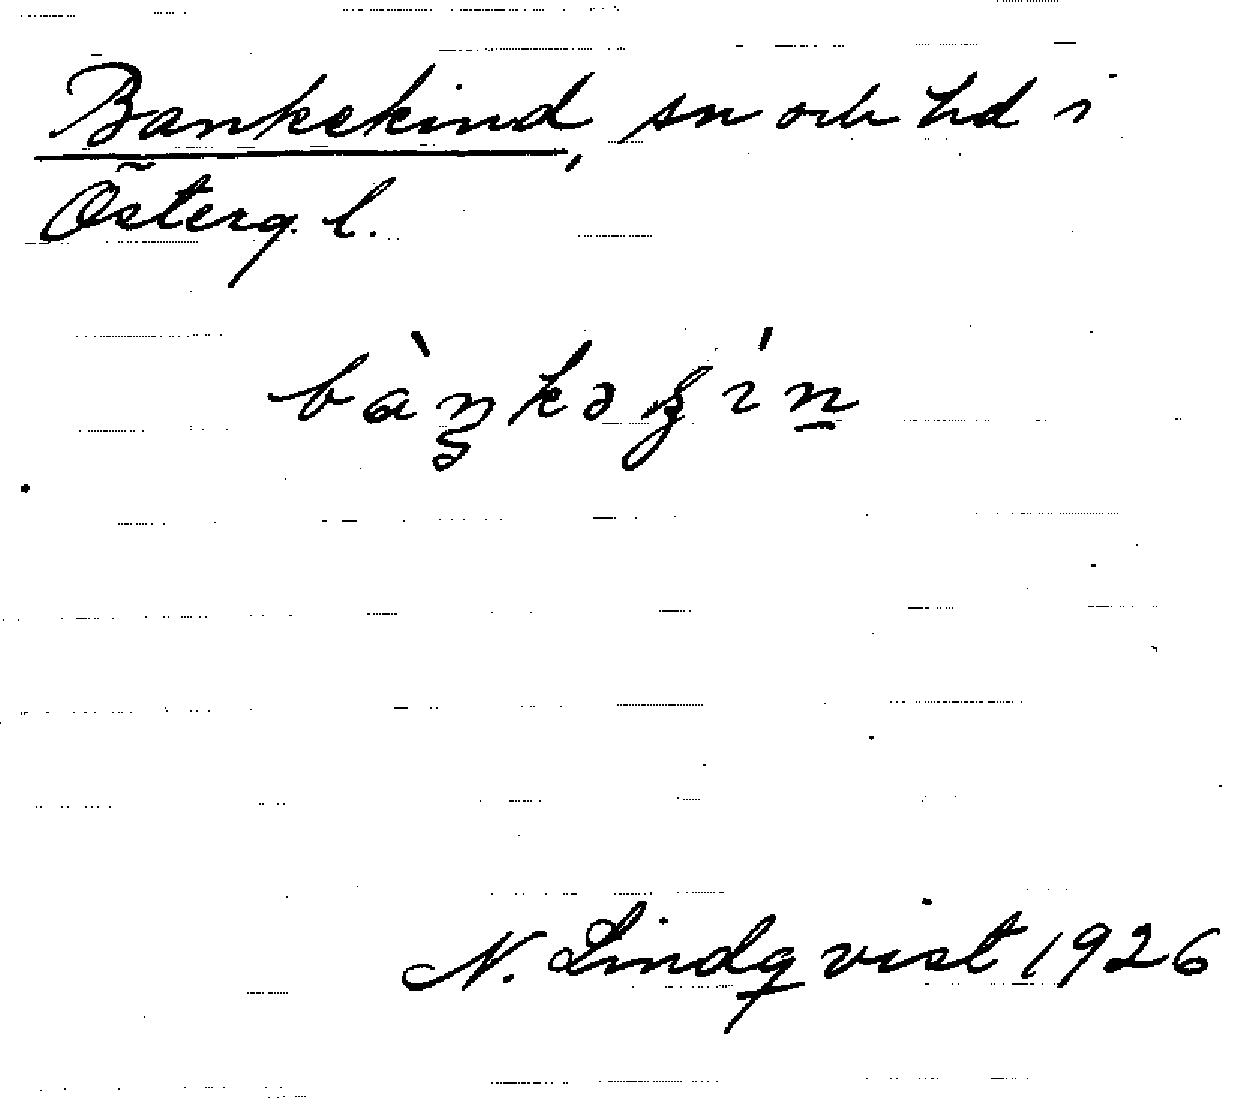 Bankekind, sn och hd i
Österg. l.
bàŋkəʒín̲
N. Lindqvist 1926